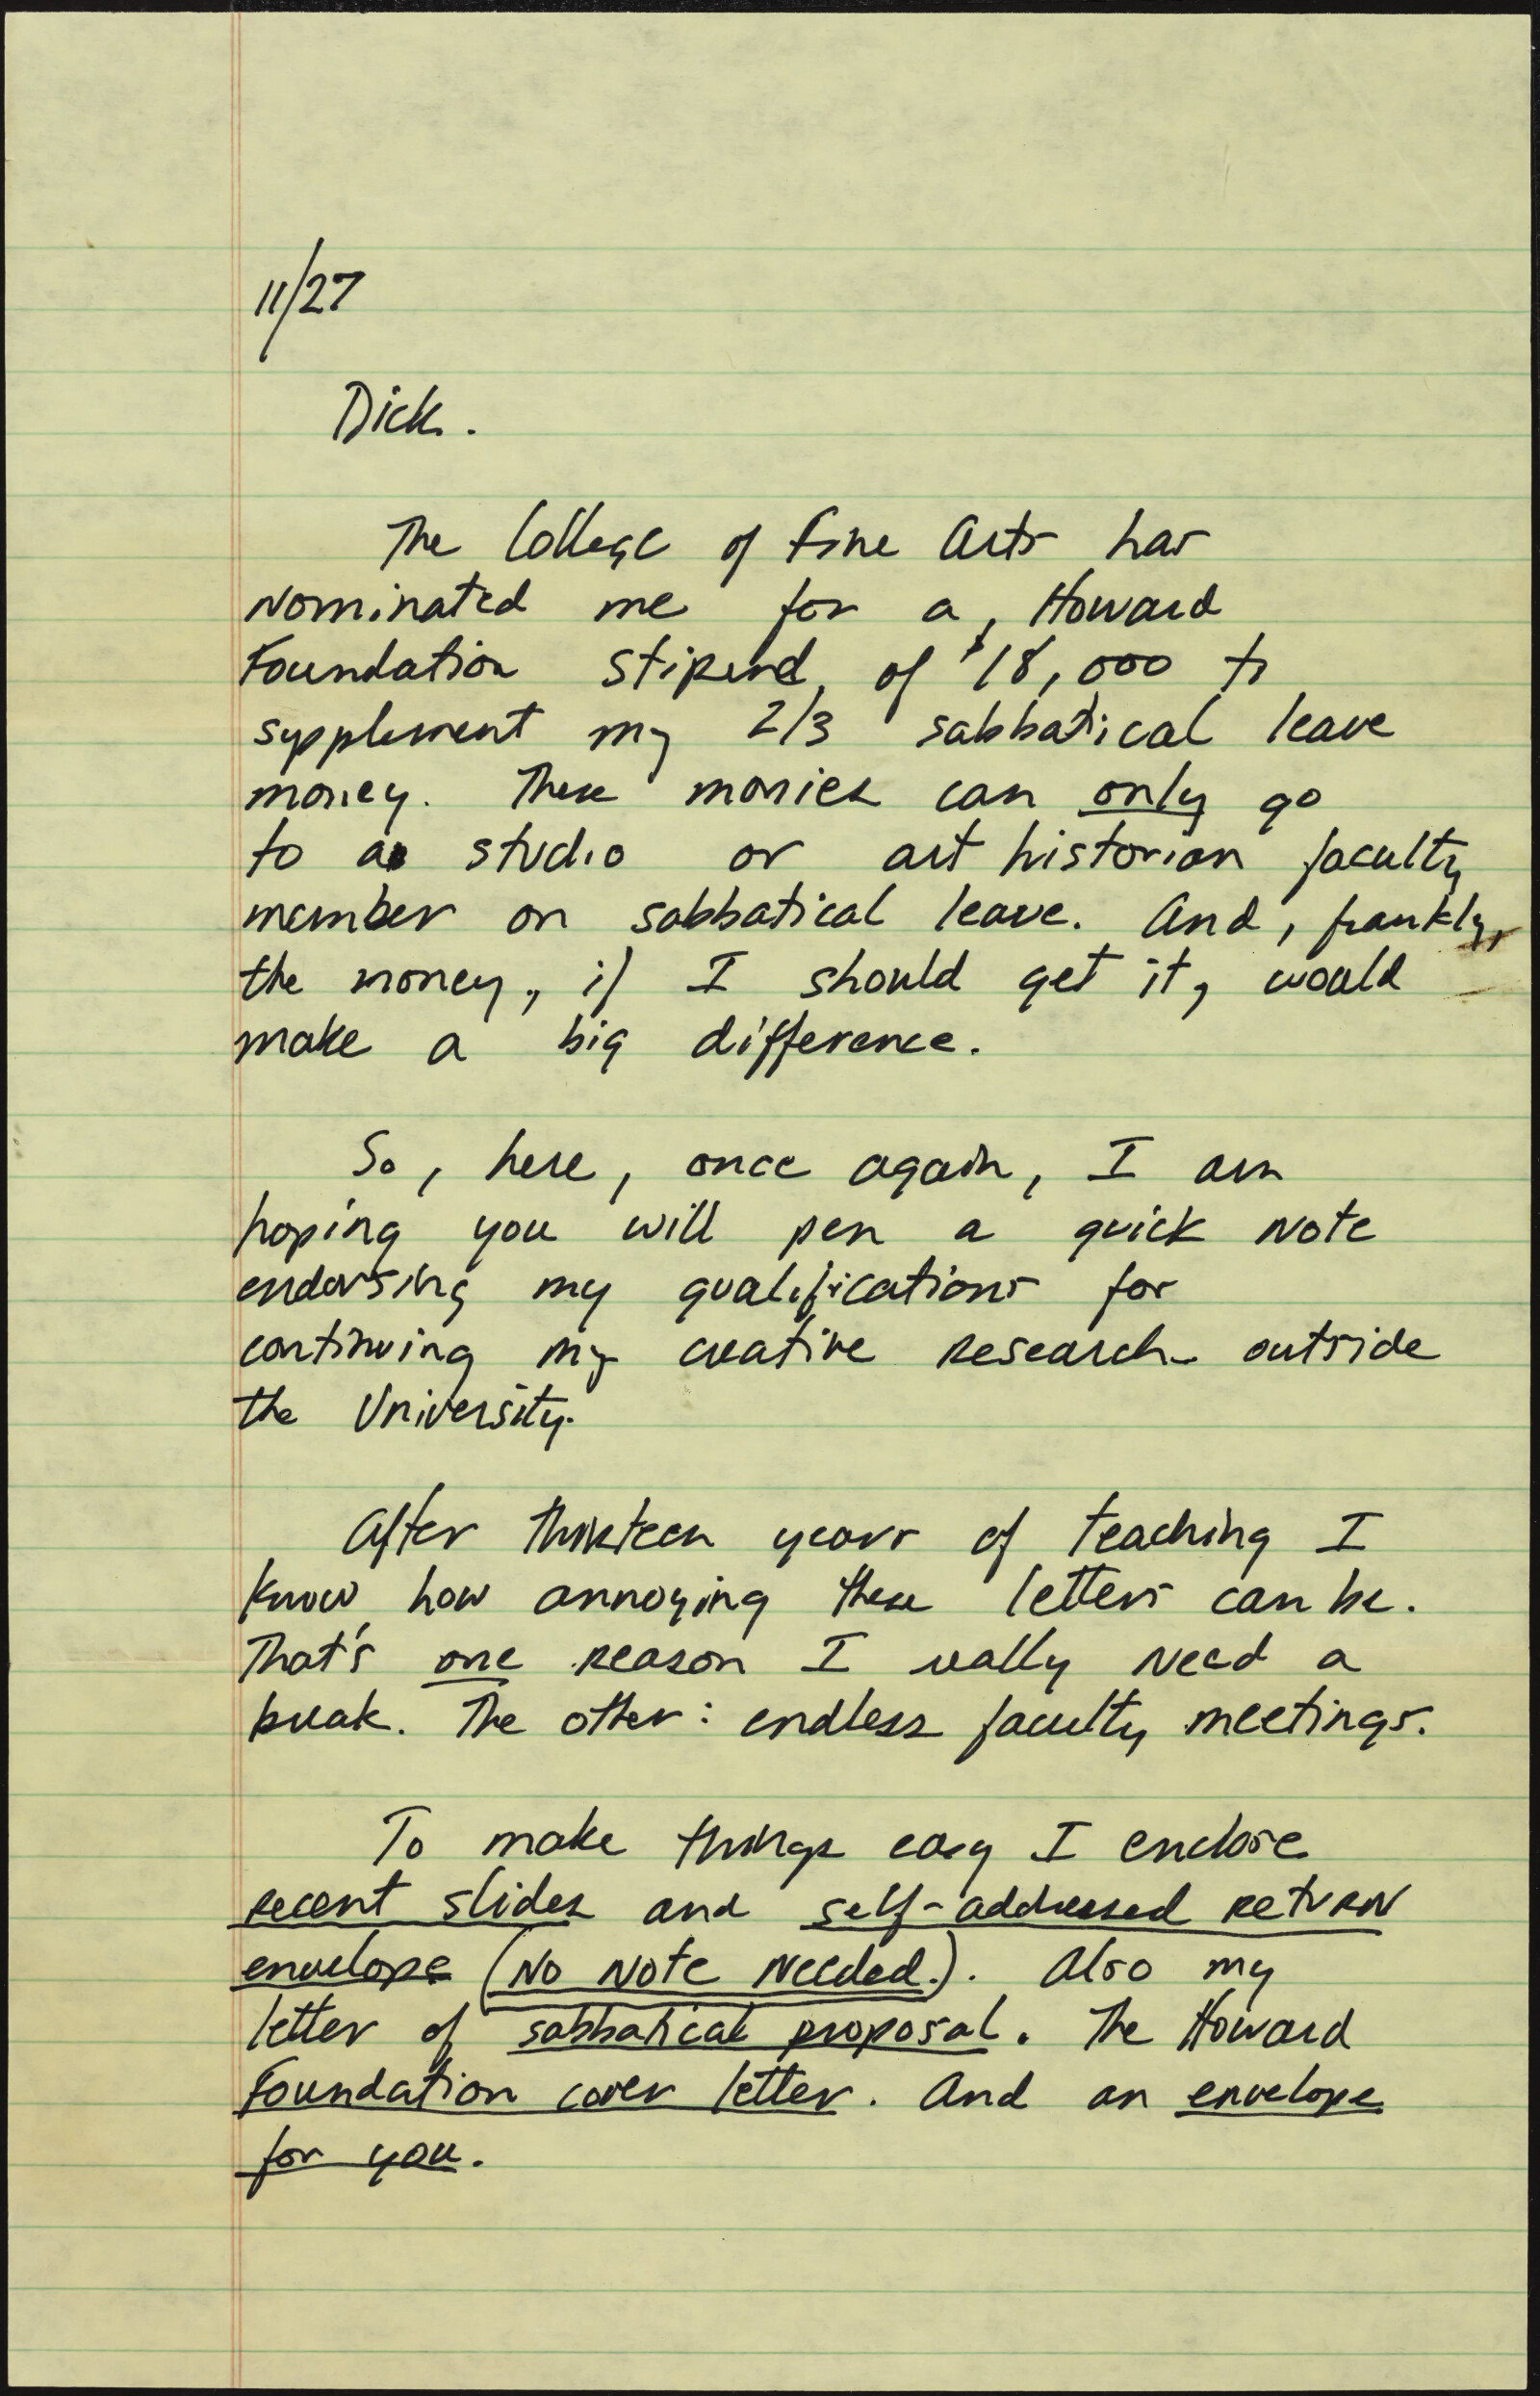 11/27
Dick.
The College of Fine Arts has
nominated me for a Howard
Foundation stipend of $18,000 to
supplement my 2/3 sabbatical leave
money. These monies can only go
to a studio or art historian faculty
member on sabbatical leave. And, frankly,
the money, if I should get it, would
make a big difference.
So, here, once again, I am
hoping you will pen a quick note
endorsing my qualifications for
continuing my creative research outside
the University.
After thirteen years of teaching I
know how annoying these letters can be.
That's one reason I really need a
break. The other: endless faculty meetings.
To make things easy I enclose
recent slides and self-addressed return
envelope (No Note Needed.). Also my
letter of sabbatical proposal. The Howard
Foundation cover letter. And an envelope
for you.